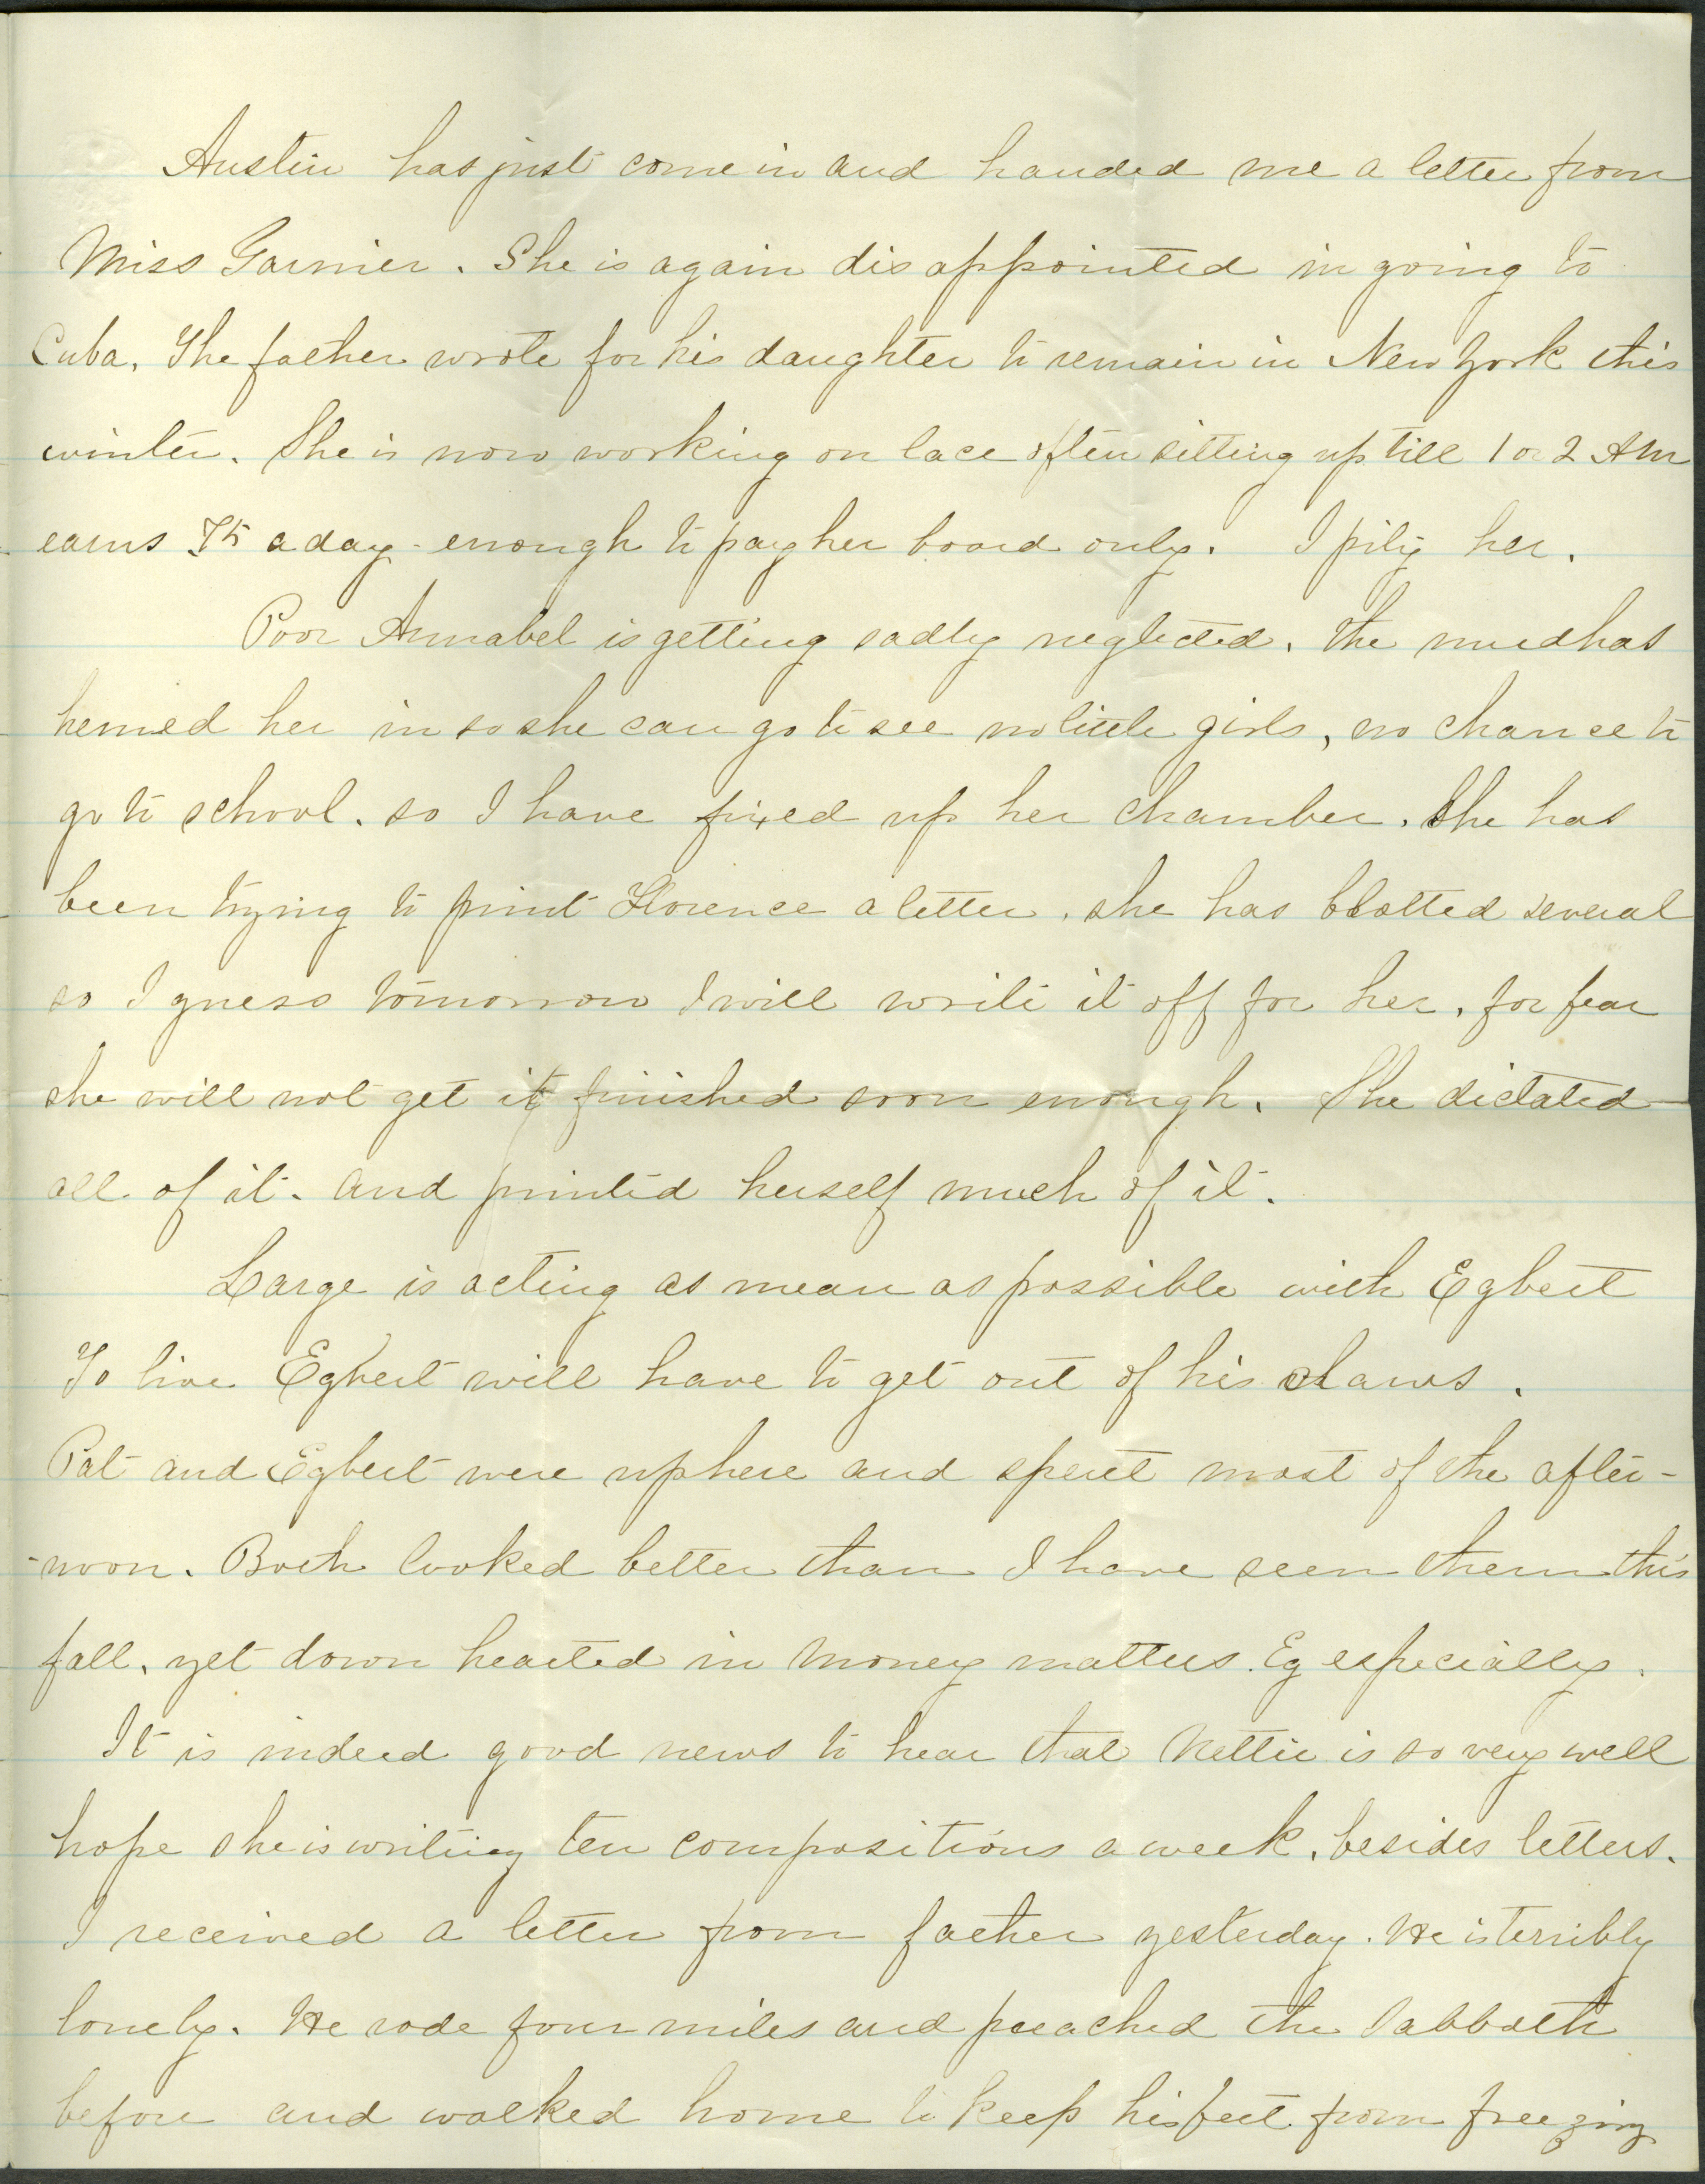 Austin has just come in and handed me a letter from
Miss Garnier. She is again disappointed in going to
Cuba, The father wrote for his daughter to remain in New York this
winter. She is now working on lace often sitting up till 1 or 2 AM
earns 75 a day - enough to pay her board only. I pity her.
Poor Annabel is getting sadly neglected. the mud has
hemed her in so she can go to see no little girls, no chance to
go to school. so I have fixed up her chamber. She has
been trying to print Florence a letter. she has blotted several
so I guess tomorrow I will write it off for her, for fear
she will not get it finished soon enough. She dictated
all of it. and printed herself much of it.
Large is acting as mean as possible with Egbert
To live Egbert will have to get out of his claws.
Pat and Egbert were up here and spent most of the after-
-noon. Both looked better than I have seen them this
fall, yet down hearted in money matters. Eg especially.
It is indeed good news to hear that Nettie is so very well
hope she is writing ten compositions a week, besides letters.
I received a letter from father yesterday. He is terribly
lonely. He rode four miles and preached the Sabbath
before and walked home to keep his feet from freezing